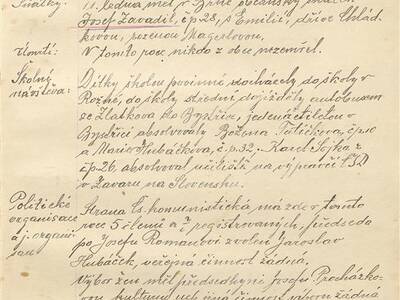 Svatby:
11. ledna měl v Brně občanský sňatek
Josef Zavadil, čp. 28, s Emilií, dříve
kovou, rozenou Nagerlovou.
Úmrtí:
V tomto roce nikdo z obce nezemřel.
Školní
návštěva:
Dítky školou povinné docházely do školy v
Rožné, do školy střední dojížděly autobusem
ze Zlatkova do Bystřice, jedenáctiletou v
Bystřici absolvovaly Božena Tuličkova, čp.
a Marie Hubáčkova, č.p. 32. Karel Sejka z
čp. 26. absolvoval učiliště na výpravčí ČSD
v Zavaru na Slovensku.
Politické
organisace
a j. organi-
sace
Strana čs. komunistická má zde v tomto
roce 5 členů a registrovaných, předseda
po Josefu Romanovi zvolen Jaroslav
Hubáček, veřejná činnost žádná.
Výbor žen měl předsedkyni Josefu Procházko-
vou, kulturní činnost žádná